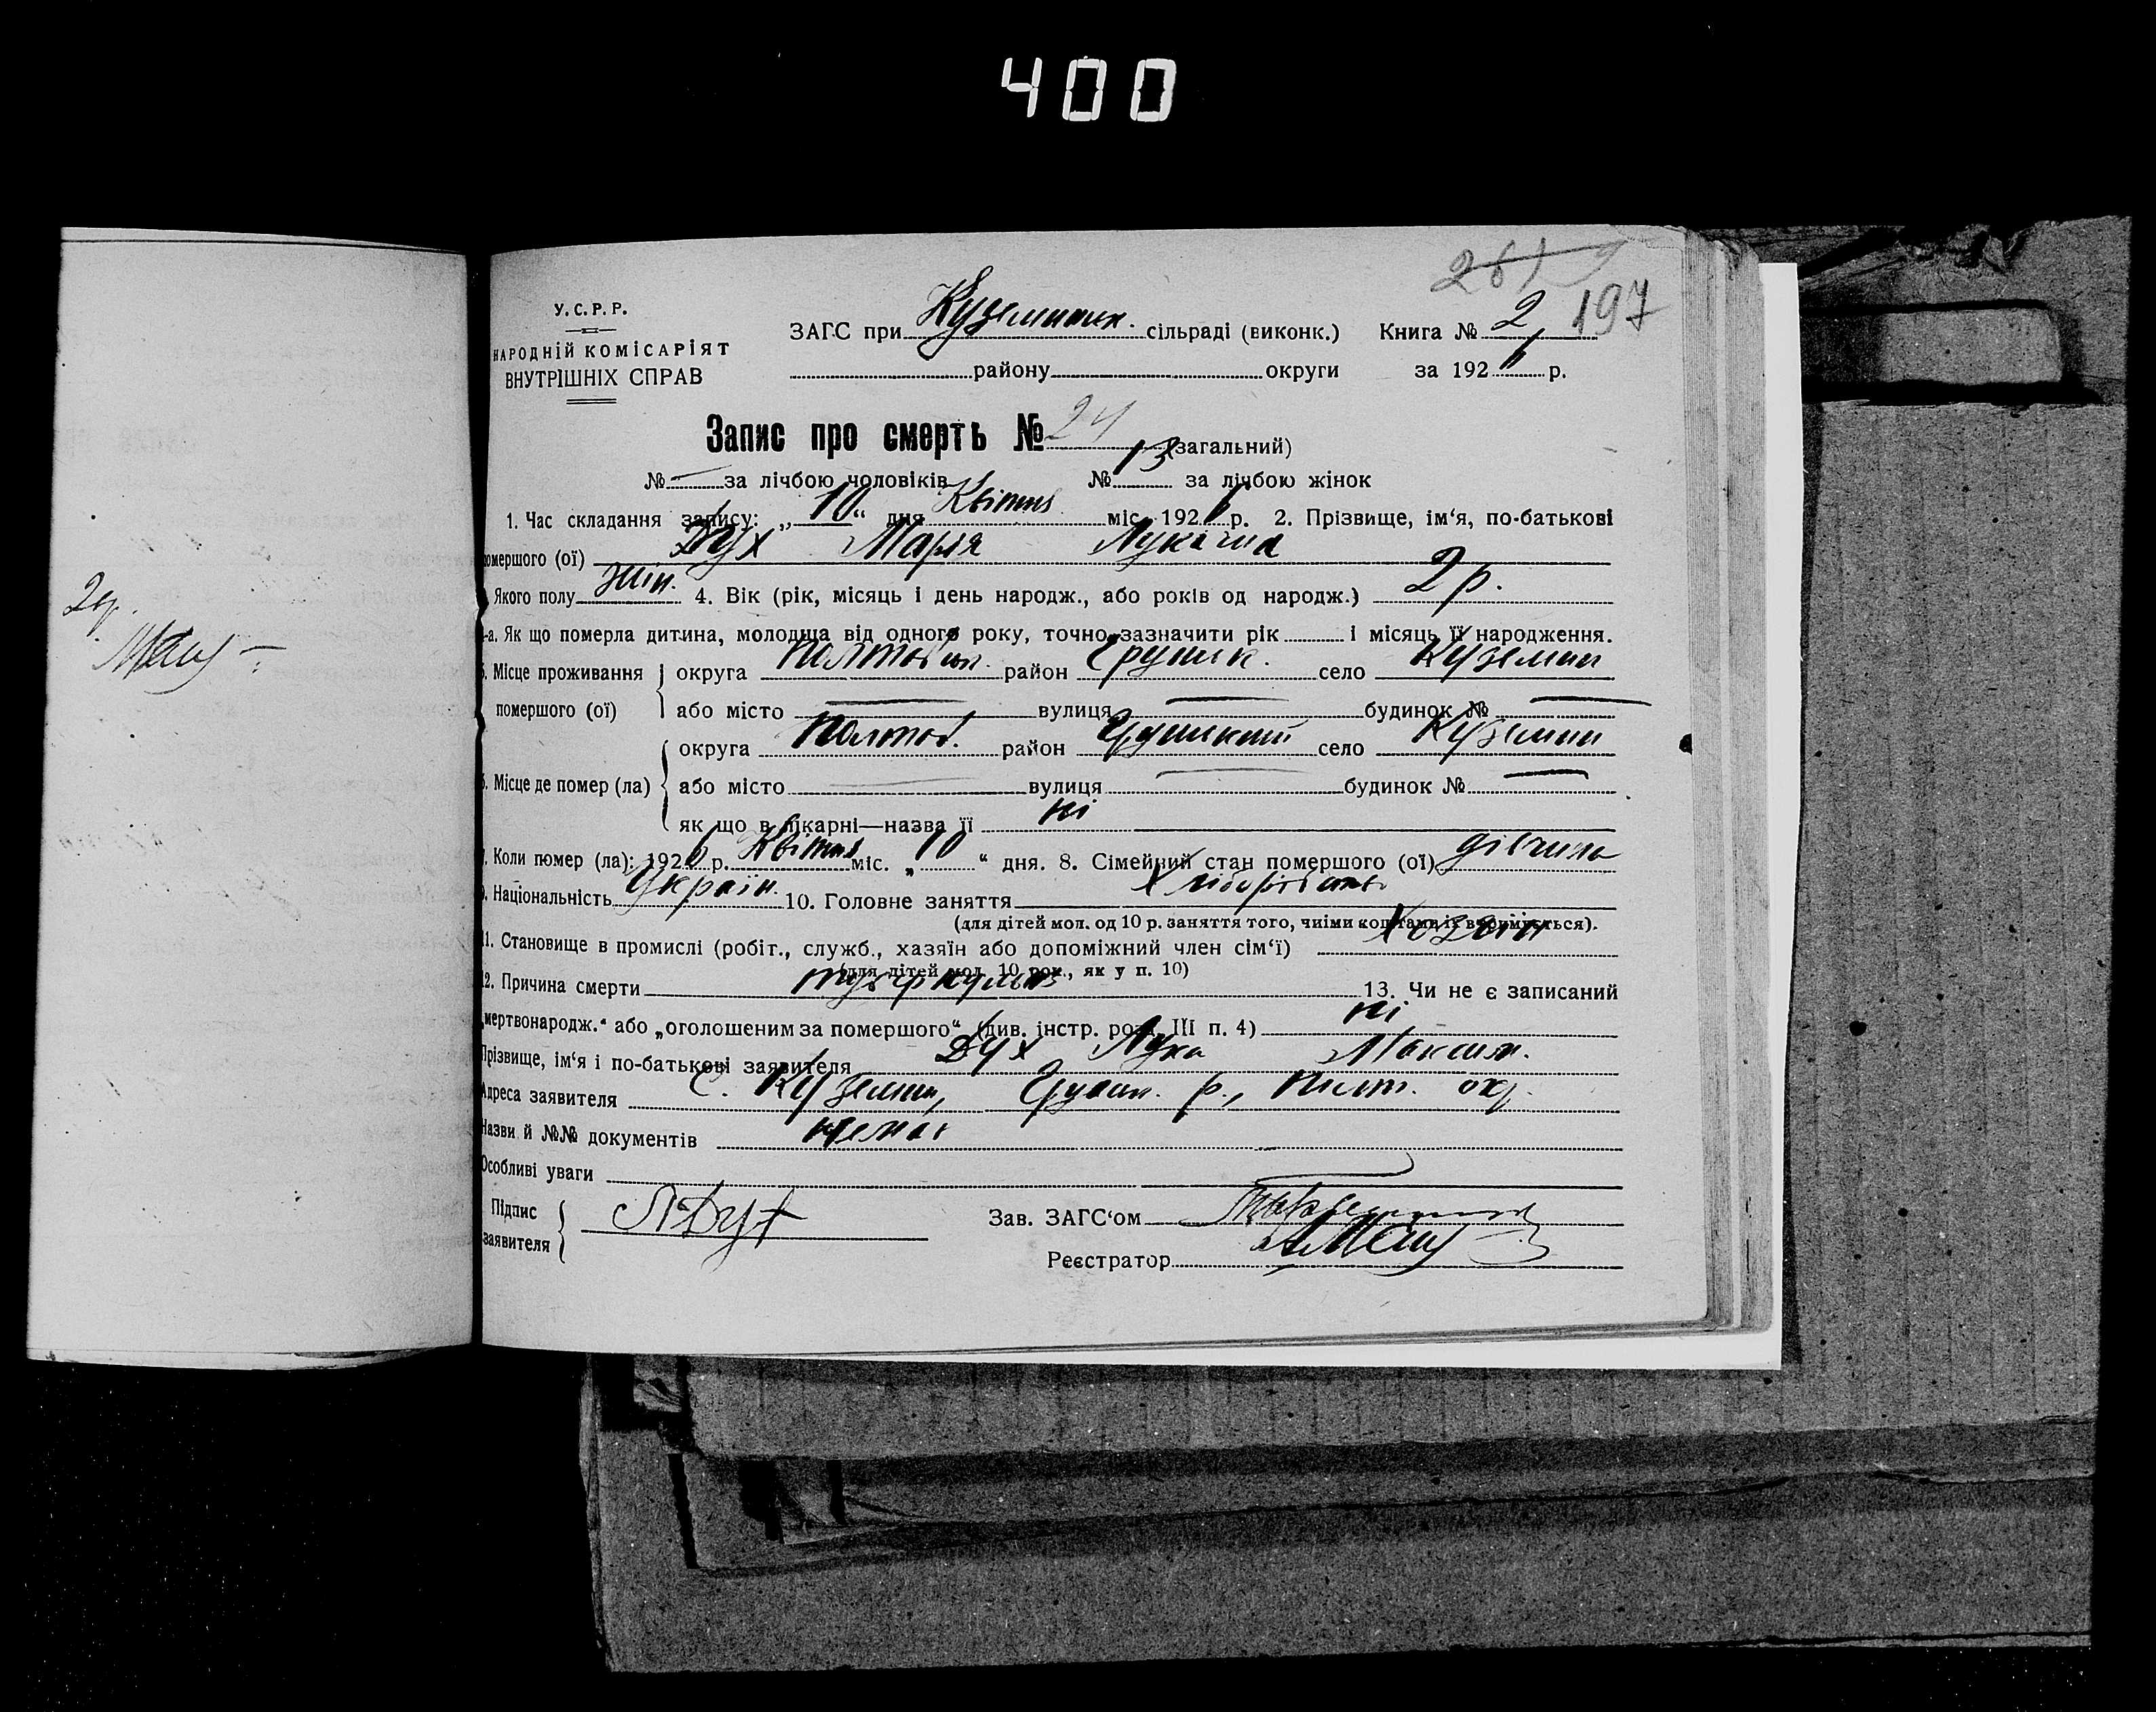 400
261
197
У.С.Р.Р.
НАРОДНІЙ КОМІСАРІЯТ
ВНУТРІШНІХ СПРАВ
ЗАГС при Куземинск. сільраді (виконк.) Книга № 2
району округи за 1926 р.
Запис про смерть № 24 (загальний)
№ — за лічбою чоловіків № 13 за лічбою жінок
1. Час складання запису: „10“ дня Квітня міс. 1926 р. 2. Прізвище, ім‘я, по-батькові
помершого (ої) Дух Марія Лукична
Якого полу жін. 4. Вік (рік, місяць і день народж., або років од народж.) 2 р.
-а. Як що померла дитина, молодша від одного року, точно зазначити рік і місяць її народження.
5. Місце проживання округа Полтавськ. район Груньск. село Куземин
помершого (ої) або місто — вулиця — будинок № —
округа Полтав. район Груньский село Куземин
6. Місце де помер (ла) або місто — вулиця — будинок № —
як що в лікарні—назва її ні
7. Коли помер (ла): 1926 р. Квітня міс. „10“ дня. 8. Сімейний стан помершого (ої) дівчина
9. Національність Україн. 10. Головне заняття Хліборобство
(для дітей мол. од 10 р. заняття того, чиїми коштами їх втримується).
11. Становище в промислі (робіт., служб., хазяїн або допоміжний член сім‘ї) Хозяїн
(для дітей мол. 10 рок., як у п. 10)
12. Причина смерти туберкульоз 13. Чи не є записаний
„мертвонародж.“ або „оголошеним за помершого“ (див. інстр. розд. III п. 4) ні
Прізвище, ім‘я і по-батькові заявителя Дух Лука Максим.
Адреса заявителя с. Куземин, Груньс. р., Полт. окр.
Назви й №№ документів немає
Особливі уваги
Підпис заявителя Л Дух Зав. ЗАГС‘ом
Реєстратор